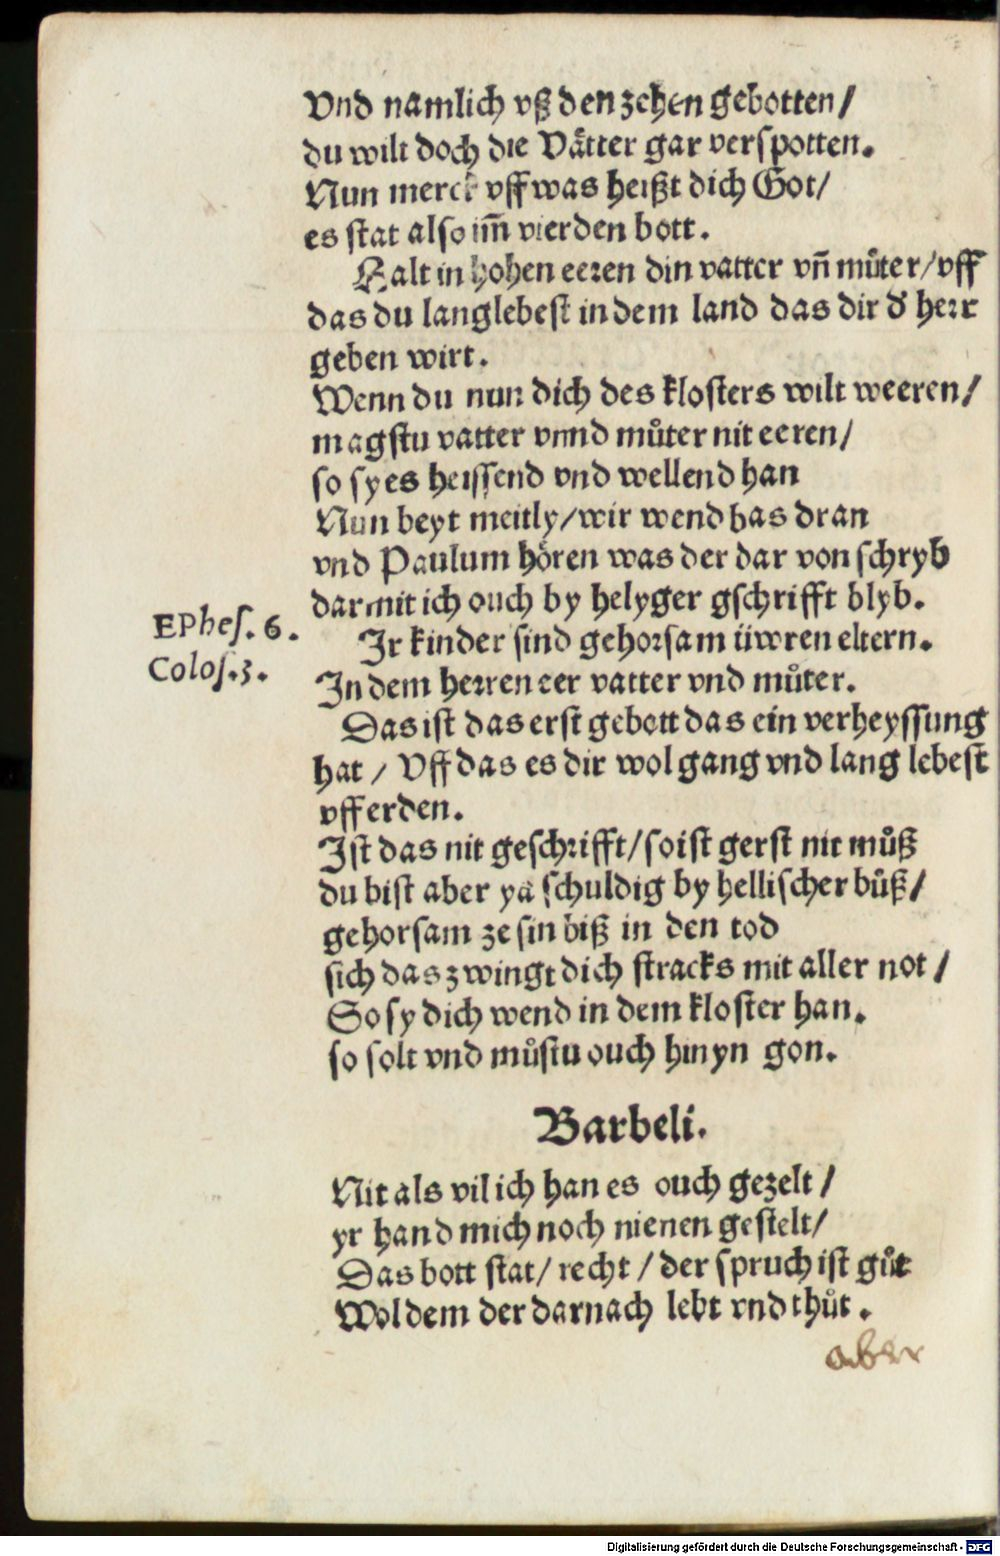 Vnd namlich vß den zehen gebotten /
du wilt doch die Vaͤtter gar verspotten.
Nun merck vff was heißt dich Got /
es stat also im̄ vierden bott.
Halt in hohen eeren din vatter vn̄ můter / vff
das du lang lebest in dem land das dir d' herr
geben wirt.
Wenn du nun dich des klosters wilt weeren /
magstu vatter vnnd můter nit eeren /
so sy es heissend vnd wellend han
Nun beyt meitly / wir wend bas dran
vnd Paulum hoͤren was der dar von schryb
darmit ich ouch by helyger gschrifft blyb.
EPhes. 6.
Colos. 3.
Ir kinder sind gehorsam üwren eltern.
In dem herren eer vatter vnd můter.
Das ist das erst gebott das ein verheyssung
hat / Vff das es dir wol gang vnd lang lebest
vff erden.
Ist das nit geschrifft / so ist gerst nit můß
du bist aber ya schuldig by hellischer bůß /
gehorsam ze sin biß in den tod
sich das zwingt dich stracks mit aller not /
So sy dich wend in dem kloster han.
so solt vnd můstu ouch hinyn gon.
Barbeli.
Nit als vil ich han es ouch gezelt /
yr hand mich noch nienen gestelt /
Das bott stat / recht / der spruch ist gůt
Wol dem der darnach lebt vnd thůt.
aber
Digitalisierung gefördert durch die Deutsche Forschungsgemeinschaft - DFG